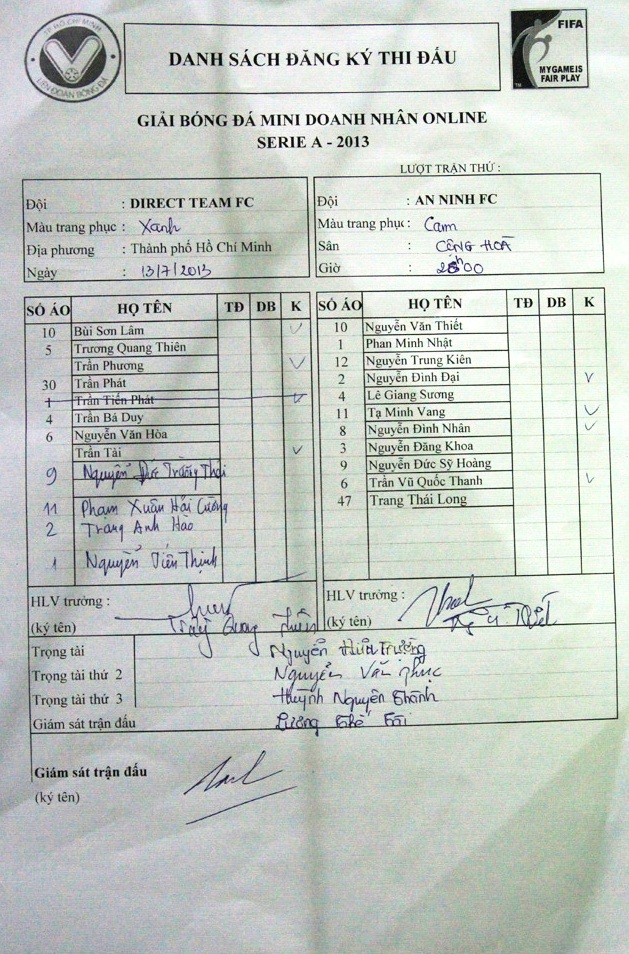 TP HỒ CHÍ MINH
LIÊN ĐOÀN BÓNG ĐÁ
DANH SÁCH ĐĂNG KÝ THI ĐẤU
FIFA
MY GAME IS
FAIR PLAY
GIẢI BÓNG ĐÁ MINI DOANH NHÂN ONLINE
SERIE A - 2013
LƯỢT TRẬN THỨ :
Đội : DIRECT TEAM FC
Màu trang phục : Xanh
Địa phương : Thành phố Hồ Chí Minh
Ngày : 13/7/2013
Đội : AN NINH FC
Màu trang phục : Cam
Sân : CỘNG HOÀ
Giờ :
SỐ ÁO HỌ TÊN TĐ DB K
10 Bùi Sơn Lâm
5 Trương Quang Thiên
Trần Phương V
30 Trần Phát
1 Trần Tiến Phát
4 Trần Bá Duy
6 Nguyễn Văn Hòa
Trần Tài V
9 Nguyễn Đức Trường Thái
11 Phạm Xuân Hải Cường
2 Trang Anh Hào
1 Nguyễn Tiến Thịnh
SỐ ÁO HỌ TÊN TĐ DB K
10 Nguyễn Văn Thiết
1 Phan Minh Nhật
12 Nguyễn Trung Kiên
2 Nguyễn Đình Đại V
4 Lê Giang Sương
11 Tạ Minh Vang V
8 Nguyễn Đình Nhân V
3 Nguyễn Đăng Khoa
9 Nguyễn Đức Sỹ Hoàng
6 Trần Vũ Quốc Thanh V
47 Trang Thái Long
HLV trưởng :
(ký tên)
HLV trưởng :
(ký tên)
Trọng tài Nguyễn Hữu Trường
Trọng tài thứ 2 Nguyễn Văn Phục
Trọng tài thứ 3 Huỳnh Nguyên Thành
Giám sát trận đấu Lương Thế Tài
Giám sát trận đấu
(ký tên)